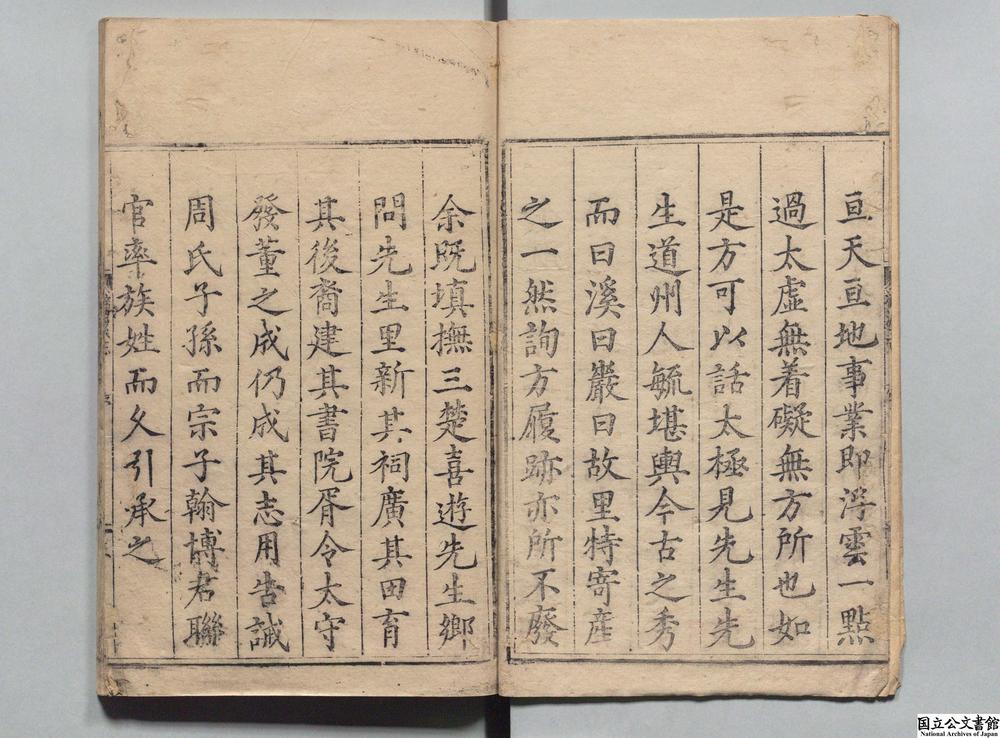 亘天亘地事業即浮雲一點
過太虛無着礙無方所也如
是方可以話太極見先生先
生道州人毓堪輿今古之秀
而曰溪曰巖曰故里特寄産
之一然詢方履跡亦所不廢
余既填撫三楚喜遊先生鄉
問先生里新其祠廣其田育
其後裔建其書院胥令太守
發董之成仍成其志用告誡
周氏子孫而宗子翰博君聯
官率族姓而乂引承之
国立公文書館
National Archives of Japan